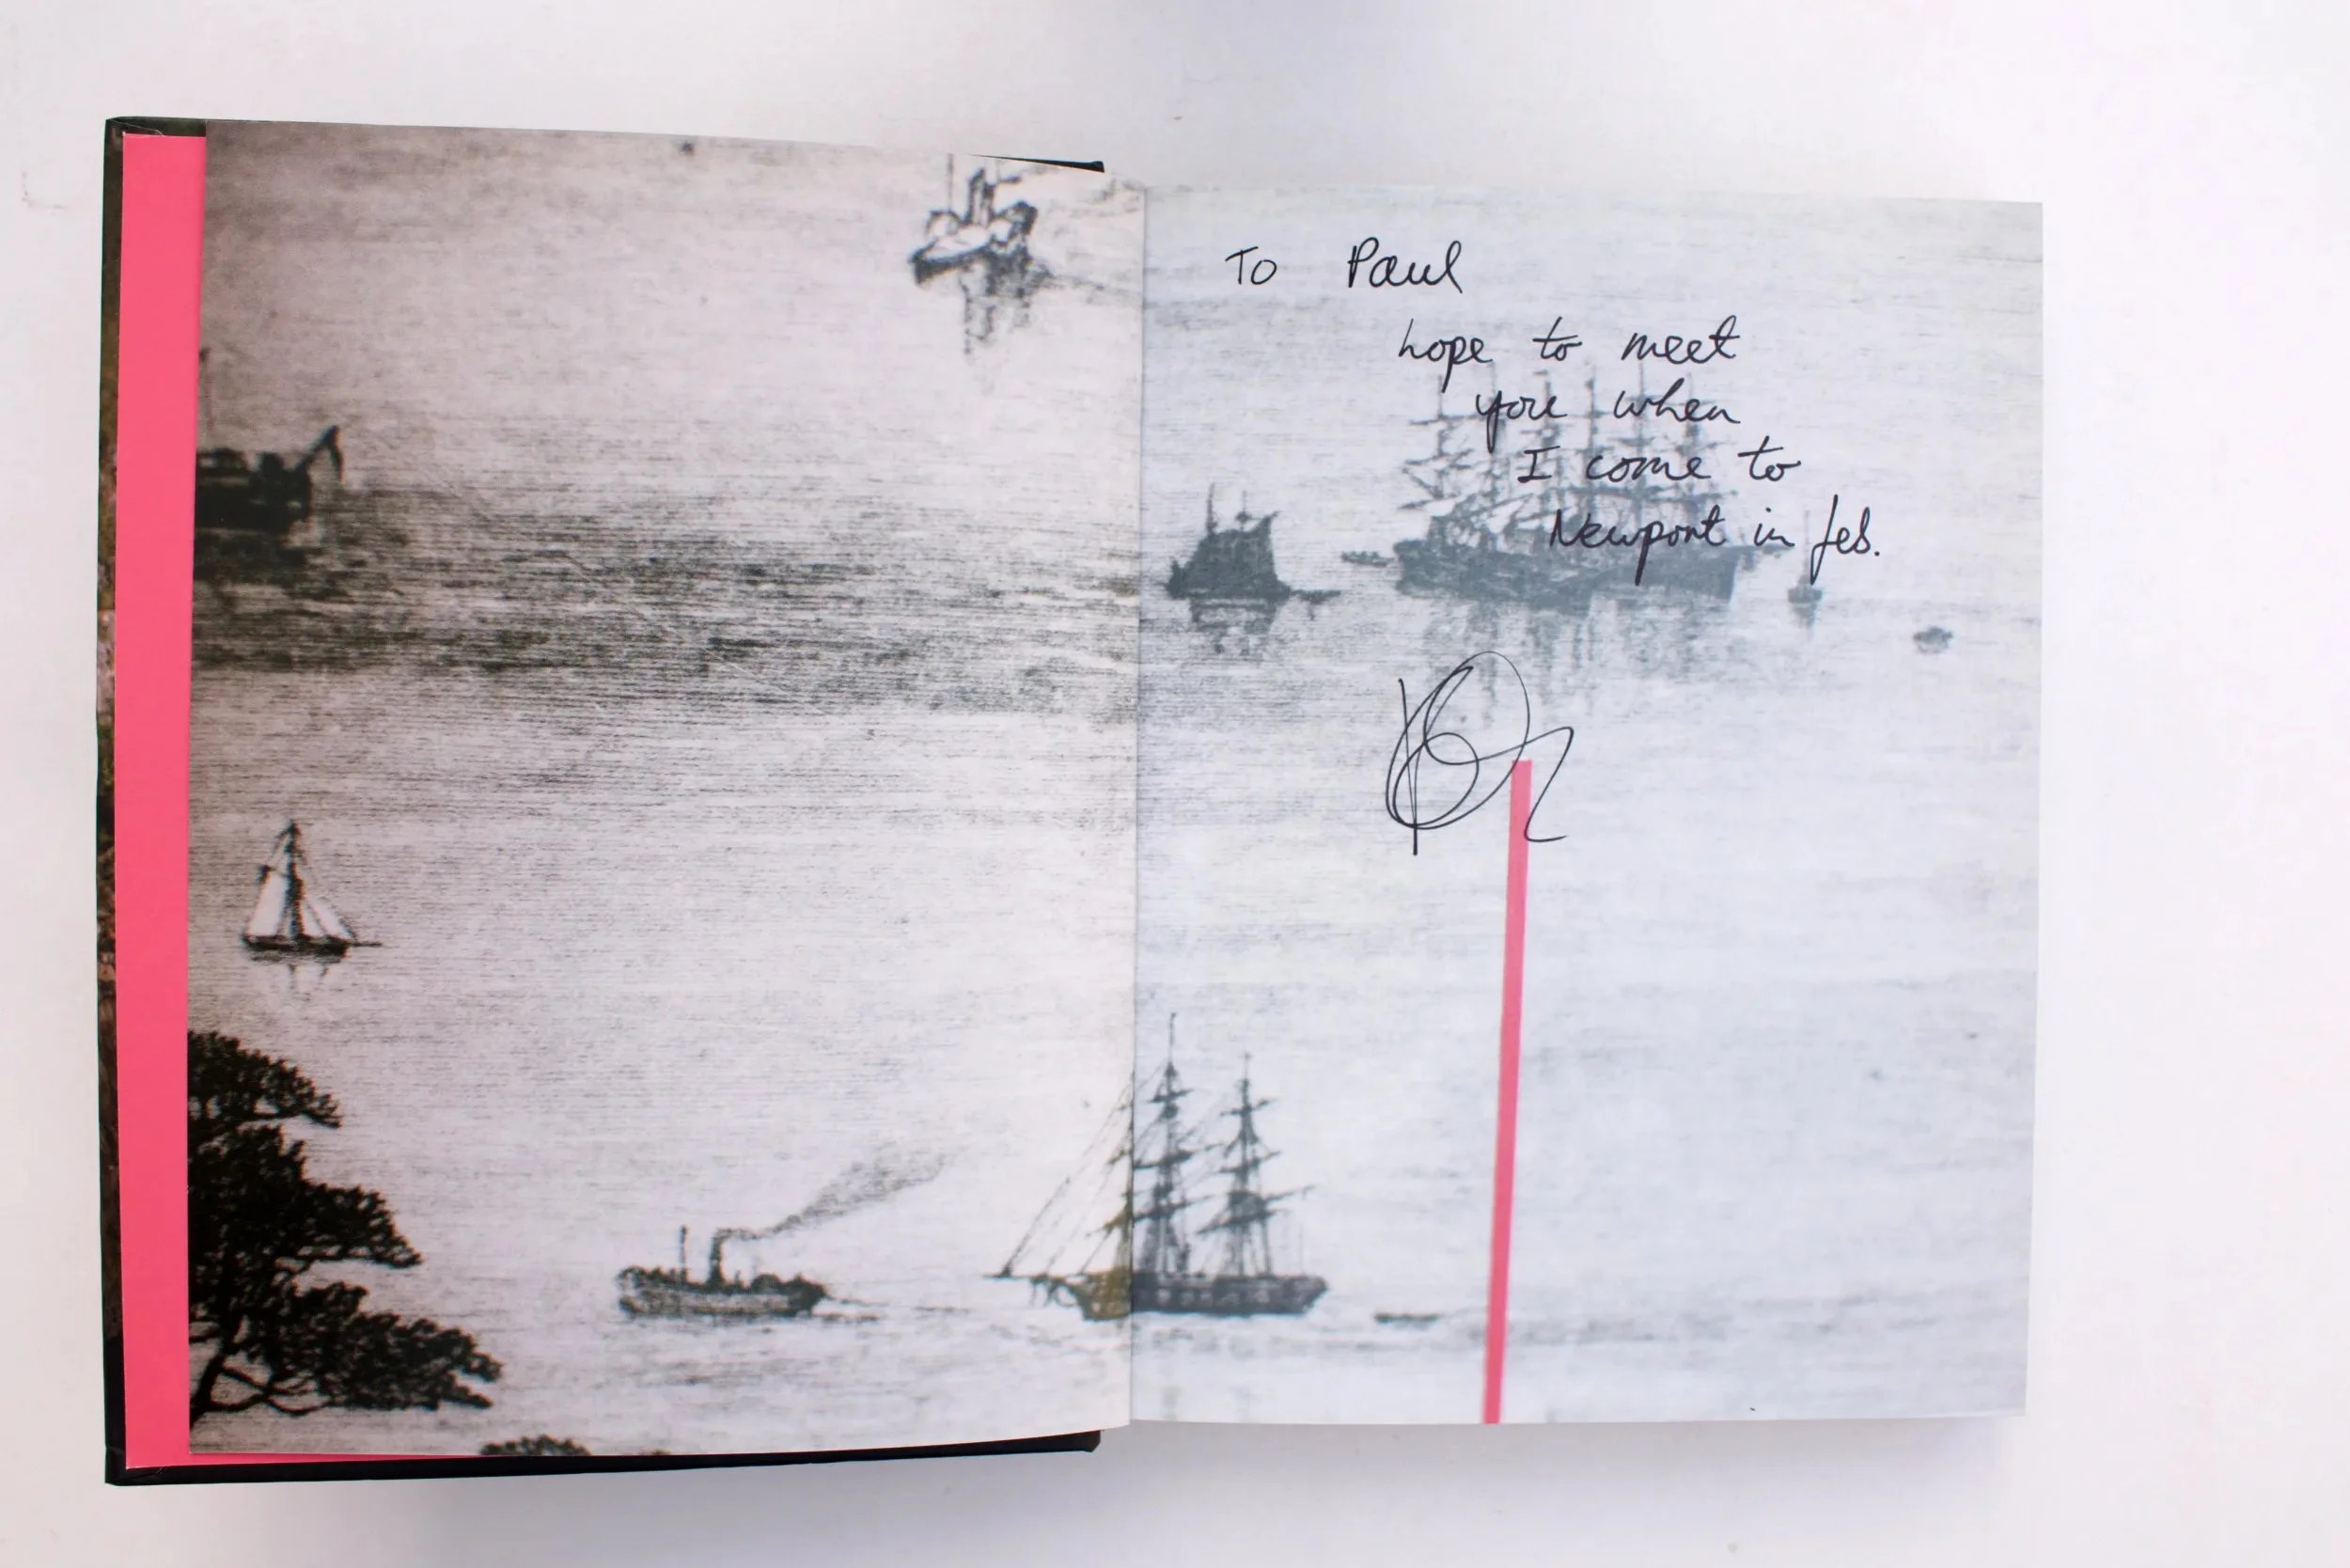 To Paul
hope to meet
you when
I come to
Newport in feb.